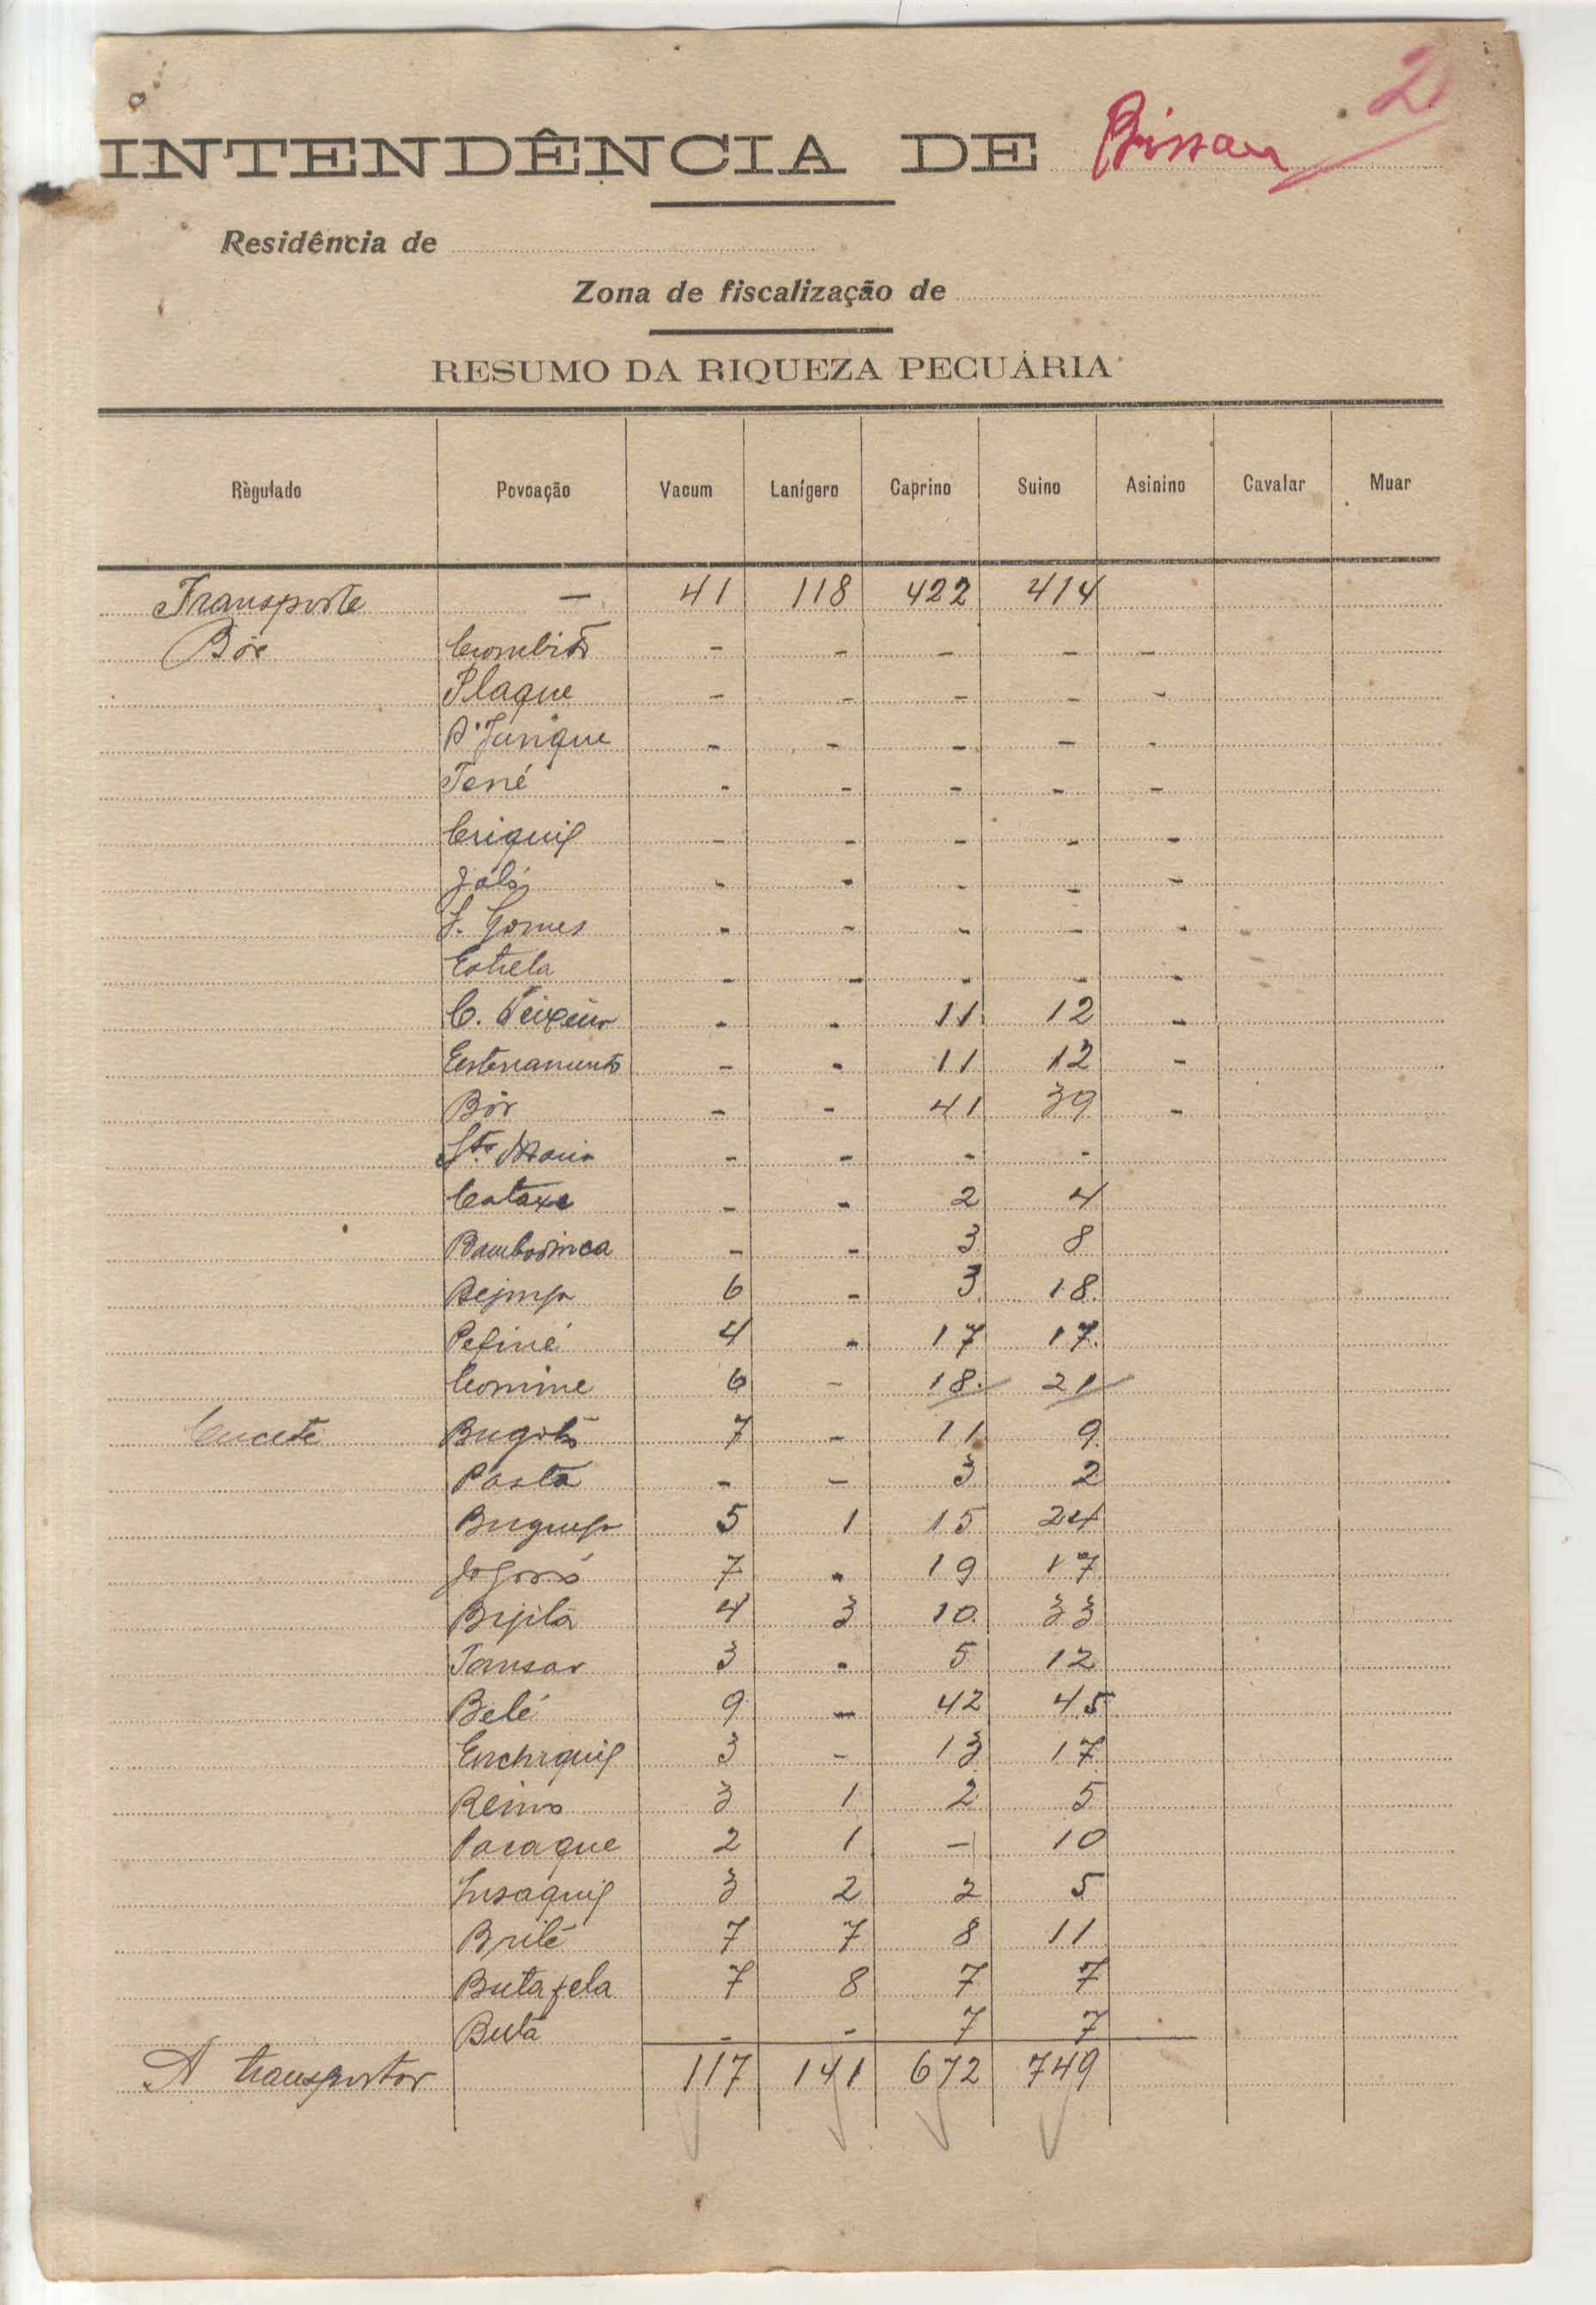 2
INTENDÊNCIA DE Bissau
Residência de
Zona de fiscalização de
RESUMO DA RIQUEZA PECUÁRIA
Règulado Povoação Vacum Lanígero Caprino Suino Asinino Cavalar Muar
Transporte — 41 118 422 414
Bôr - - - - -
Plaque - - - - -
D'Junque - - - - -
Tené - - - - -
- - - - -
Jalá - - - - -
J. Gomes - - - - -
Estrela - - - - -
C. Teixeira - - 11 12 -
- - 11 12 -
Bôr - - 41 39 -
Sta Maria - - - -
Cataxe - - 2 4
Bambadinca - - 3 8
6 - 3 18
Pefiné 4 - 17 17
Comine 6 - 18 21
7 - 11 9
Pasta - - 3 2
5 1 15 24
7 - 19 17
Bijita 4 3 10 33
Tansar 3 - 5 12
Belé 9 - 42 45
3 - 13 17
Reino 3 1 2 5
Pacaque 2 1 - 10
3 2 2 5
Brilé 7 7 8 11
7 8 7 7
Butá - - 7 7
A transportar 117 141 672 749